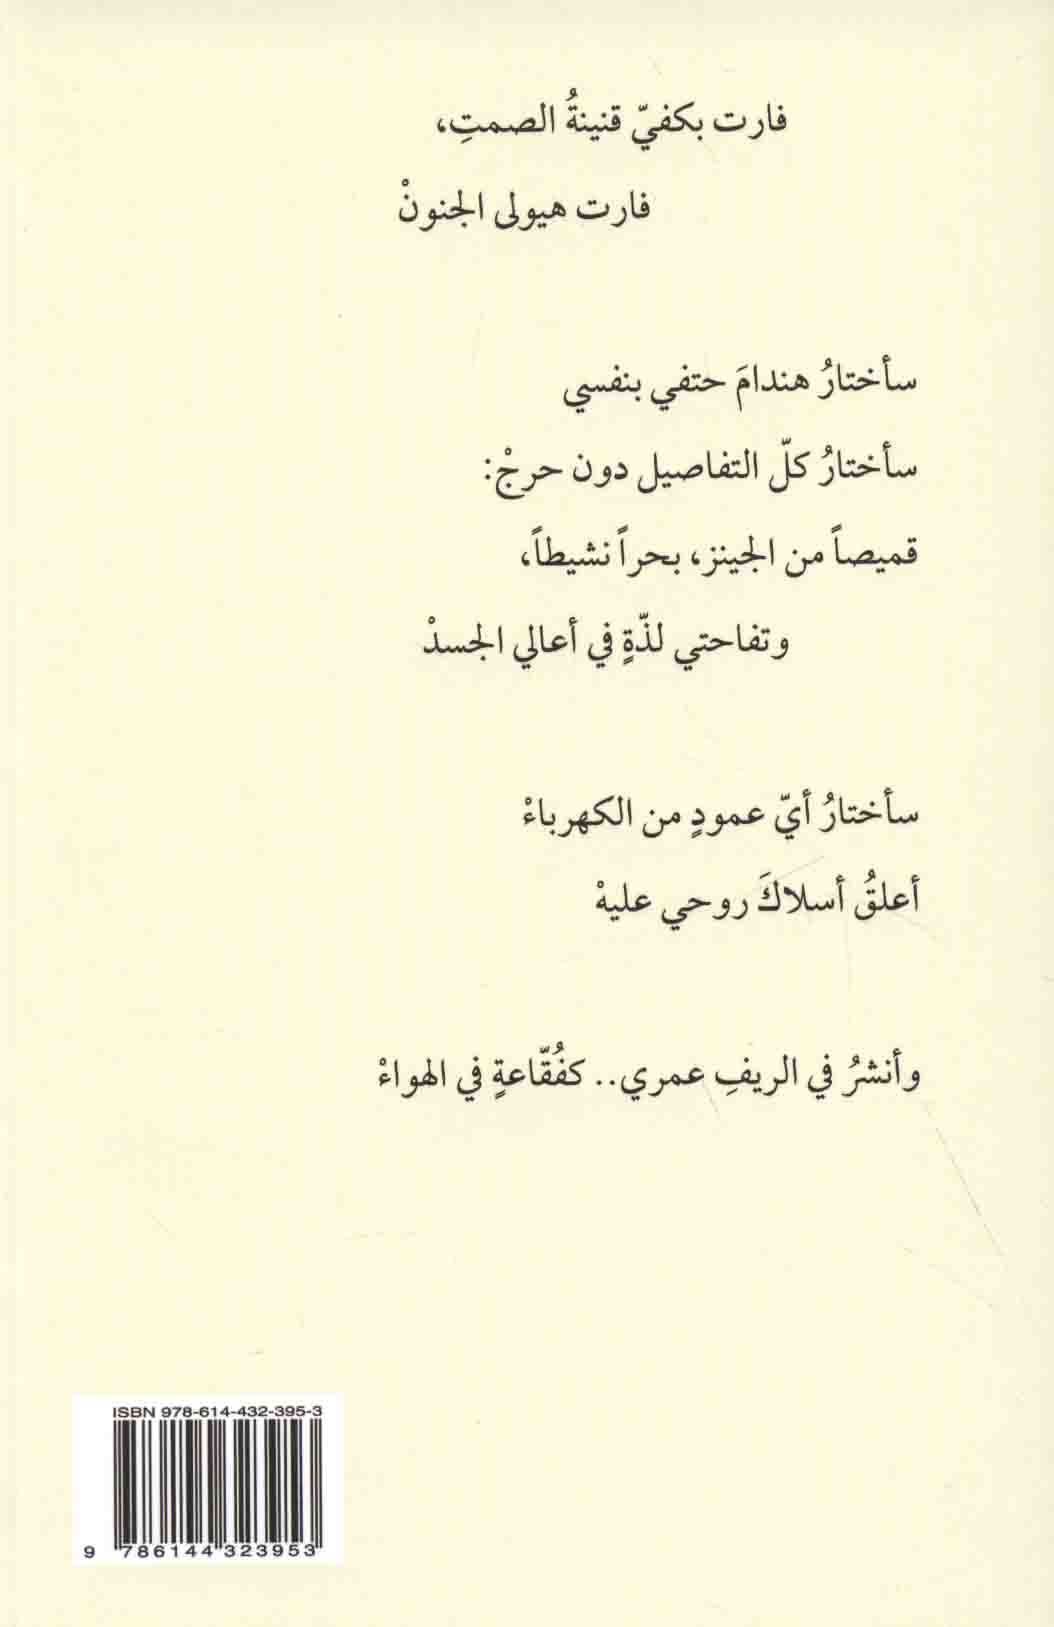 فارت بكفيّ قنينةُ الصمتِ،
فارت هيولى الجنونْ
سأختارُ هندامَ حتفي بنفسي
سأختارُ كلّ التفاصيل دون حرجْ:
قميصاً من الجينز، بحراً نشيطاً،
وتفاحتي لذّةٍ في أعالي الجسدْ
سأختارُ أيّ عمودٍ من الكهرباءْ
أعلقُ أسلاكَ روحي عليهْ
وأنشرُ في الريفِ عمري.. كفُقّاعةٍ في الهواءْ
ISBN 978-614-432-395-3
9 786144 323953